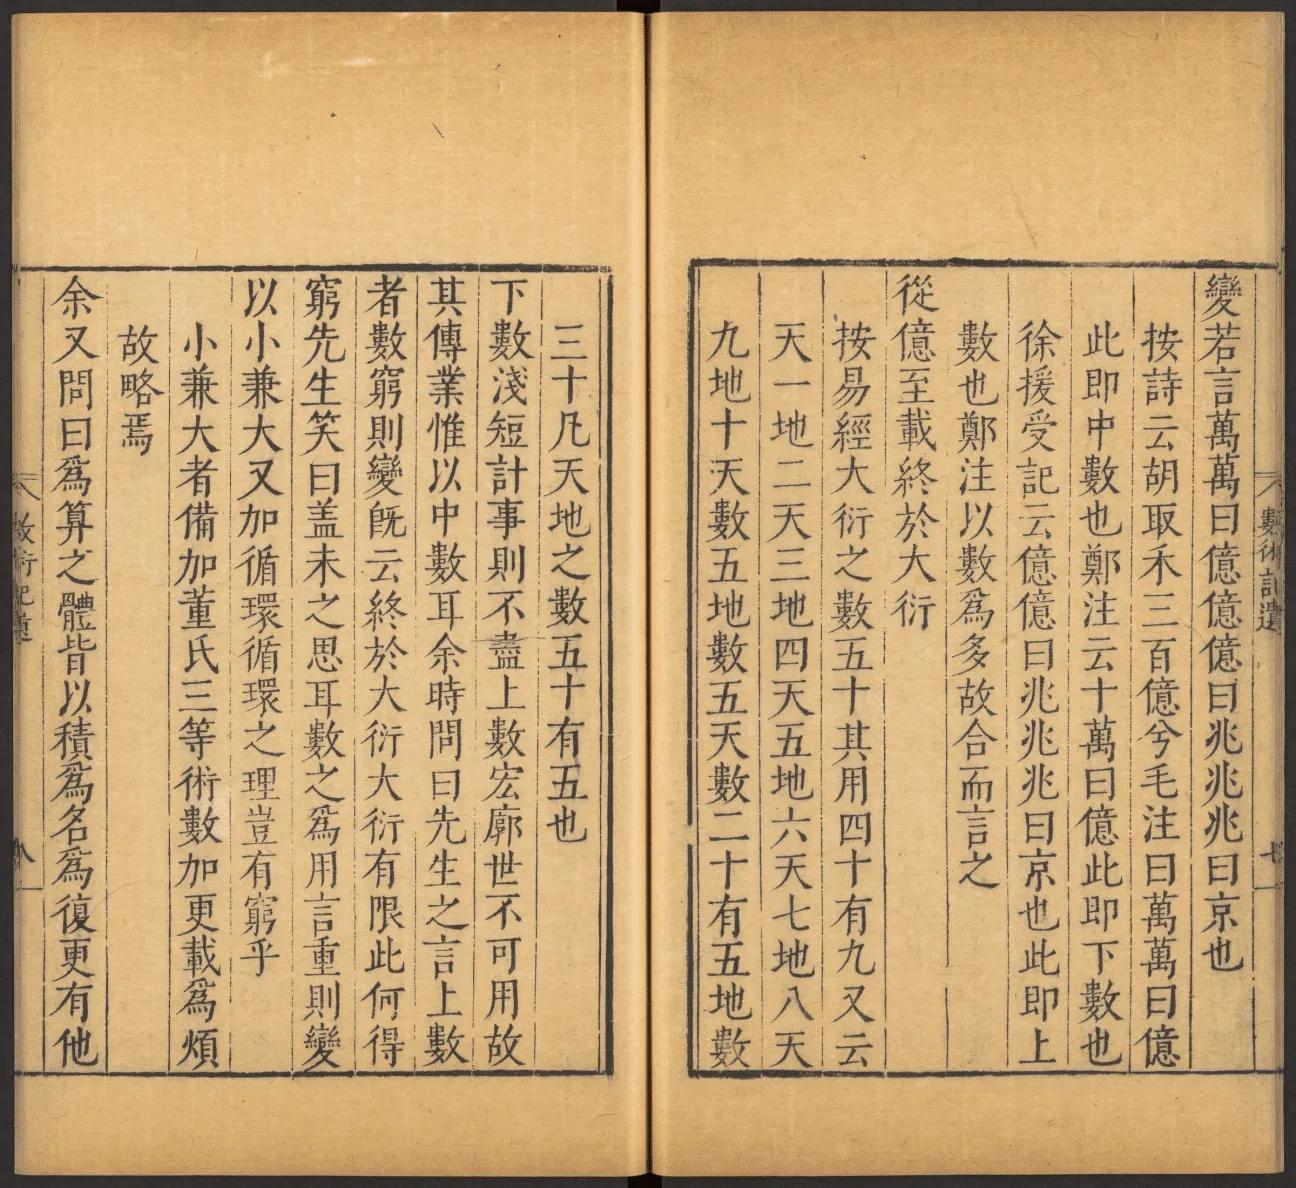 數術記遺
七
變若言萬萬曰億億億曰兆兆兆曰京也
按詩云胡取禾三百億兮毛注曰萬萬曰億
此即中數也鄭注云十萬曰億此即下數也
徐援受記云億億曰兆兆兆曰京也此即上
數也鄭注以數爲多故合而言之
從億至載終於大衍
按易經大衍之數五十其用四十有九又云
天一地二天三地四天五地六天七地八天
九地十天數五地數五天數二十有五地數
三十凡天地之數五十有五也
下數淺短計事則不盡上數宏廓世不可用故
其傳業惟以中數耳余時問曰先生之言上數
者數窮則變旣云終於大衍大衍有限此何得
窮先生笑曰盖未之思耳數之爲用言重則變
以小兼大又加循環循環之理豈有窮乎
小兼大者備加董氏三等術數加更載爲煩
故略焉
余又問曰爲算之體皆以積爲名爲復更有他
數術記遺
八